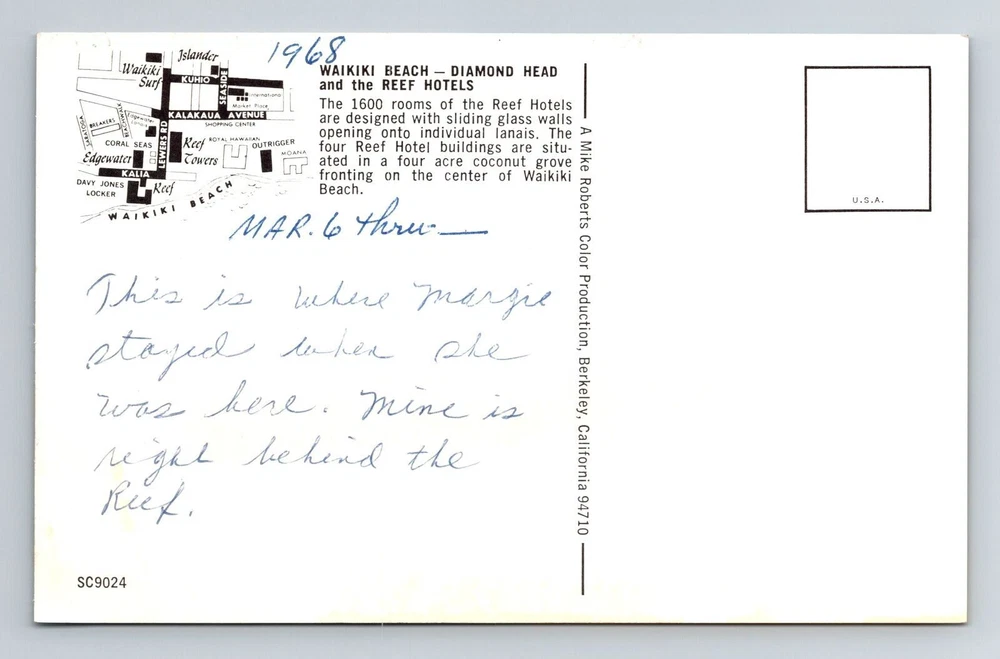 1968
Islander
Waikiki
Surf
KUHIO
SEASIDE
International
Market Place
KALAKAUA AVENUE
SHOPPING CENTER
SARATOGA
BREAKERS
BEACHWALK
Edgewater
LEWERS RD
CORAL SEAS
Reef
Towers
ROYAL HAWAIIAN
OUTRIGGER
MOANA
Edgewater
KALIA
DAVY JONES
LOCKER
Reef
WAIKIKI BEACH
WAIKIKI BEACH — DIAMOND HEAD
and the REEF HOTELS
The 1600 rooms of the Reef Hotels
are designed with sliding glass walls
opening onto individual lanais. The
four Reef Hotel buildings are situ-
ated in a four acre coconut grove
fronting on the center of Waikiki
Beach.
MAR. 6 thru —
This is where Margie
stayed when she
was here. Mine is
right behind the
Reef.
SC9024
A Mike Roberts Color Production, Berkeley, California 94710
U.S.A.